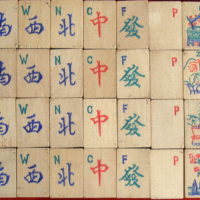 W N C F P
南 西 北 中 發
W N C F P
南 西 北 中 發
W N C F P
南 西 北 中 發
W N C F P
南 西 北 中 發